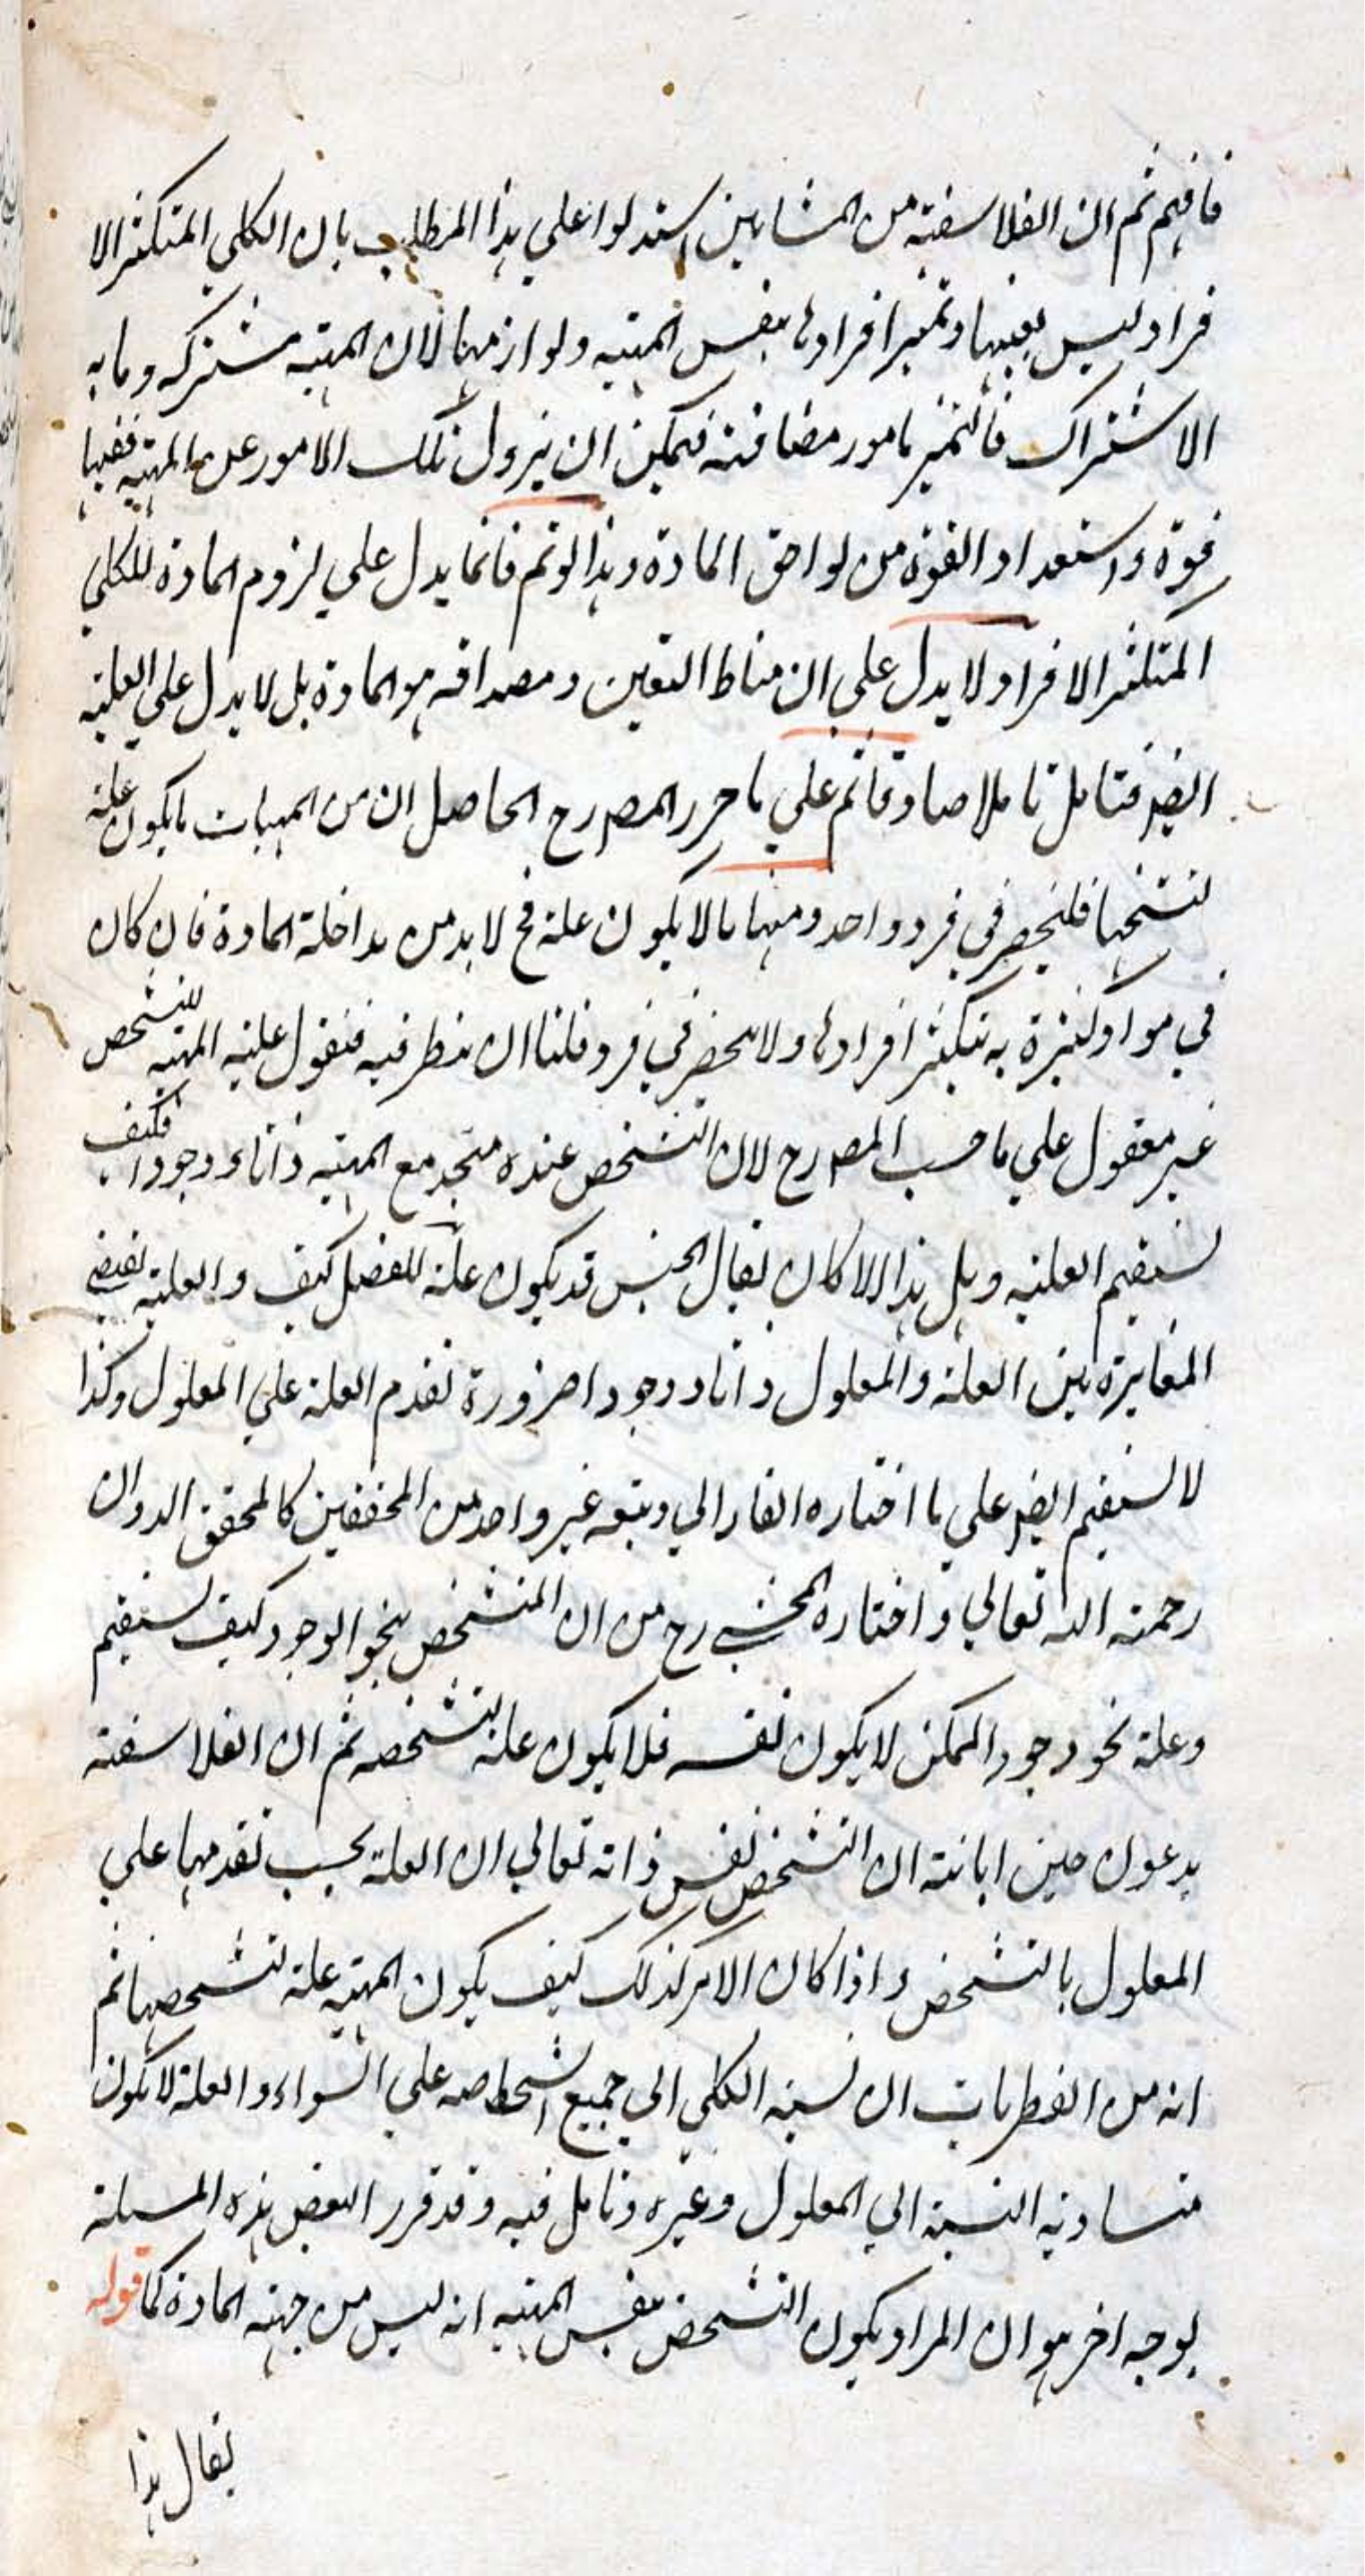 فافهم ثم ان الفلاسفة من المشائين استدلوا علي هذا المطلب بان الكلي المتكثر الا
فراد ليس تعينها وتميز افرادها بنفس المهية ولوازمها لان المهية مشتركة وما به
الاشتراك فالتميز بامور مضافة فيمكن ان يزول تلك الامور عن المهية ففيها
قوة واستعداد والقوة من لواحق المادة وهذا لو تم فانما يدل علي لزوم المادة للكلي
المتكثر الافراد ولا يدل علي ان مناط التعين ومصداقه هو المادة بل لا يدل علي العلية
ايضا فتامل تاملا صادقا ثم علي ما حرر المص رح الحاصل ان من المهيات ما يكون علة
لتشخصها فلينحصر في فرد واحد ومنها ما لا يكون علة فح لا بد من مداخلة المادة فان كان
في مواد كثيرة به يتكثر افرادها ولا ينحصر في فرد فلنا ان ننظر فيه فنقول علية المهية للتشخص
غير معقول علي ما حسب المص رح لان التشخص عنده متحد مع المهية ذاتا ووجودا فكيف
يستقيم العلية وهل هذا الا كان يقال الجنس قد يكون علة للفصل كيف والعلية تقتضي
المغايرة بين العلة والمعلول ذاتا ووجودا ضرورة تقدم العلة علي المعلول وكذا
لا يستقيم ايضا علي ما اختاره الفارابي وتبعه غير واحد من المحققين كالمحقق الدوان
رحمة الله تعالي واختاره المحشي رح من ان التشخص بنحو الوجود كيف يستقيم
وعلة نحو وجود الممكن لا يكون نفسه فلا يكون علة لتشخصه ثم ان الفلاسفة
يدعون حين ابانته ان التشخص نفس ذاته تعالي ان العلة يجب تقدمها علي
المعلول بالتشخص واذا كان الامر كذلك كيف يكون المهية علة لتشخصها ثم
انه من الفطريات ان نسبة الكلي الي جميع اشخاصه علي السواء والعلة لا يكون
متساوية النسبة الي المعلول وغيره وتامل فيه وقد قرر البعض هذه المسلة
بوجه اخر هو ان المراد بكون التشخص بنفس المهية انه ليس من جهة المادة كما قوله
يقال هذا